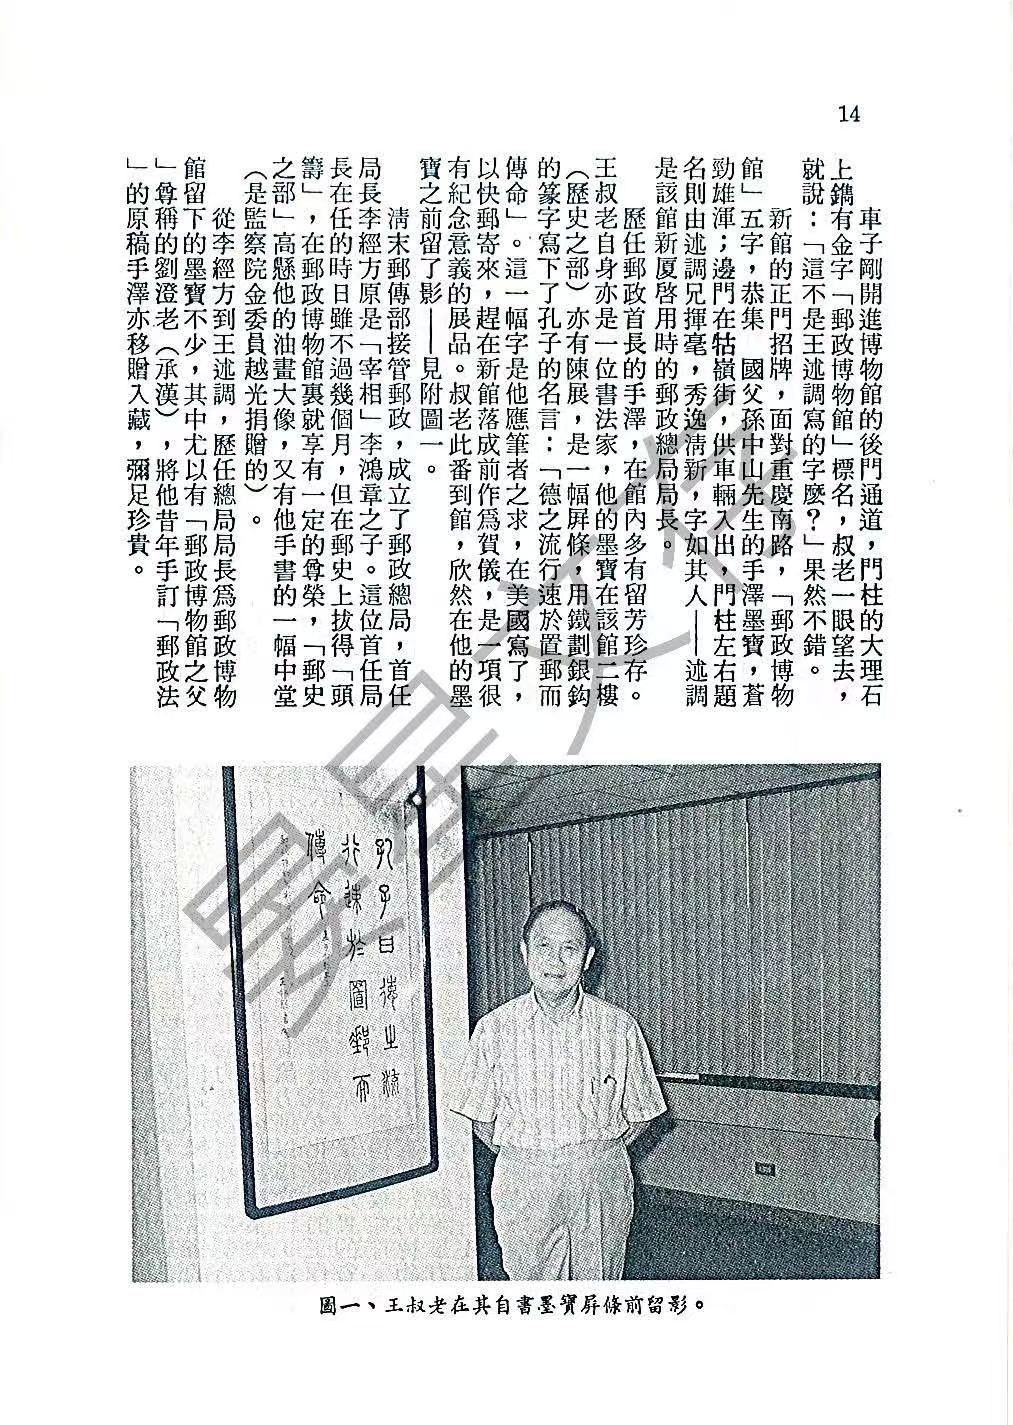 14
車子剛開進博物館的後門通道，門柱的大理石
上鐫有金字「郵政博物館」標名，叔老一眼望去，
就說：「這不是王述調寫的字麽？」果然不錯。
新館的正門招牌，面對重慶南路，「郵政博物
館」五字，恭集　國父孫中山先生的手澤墨寶，蒼
勁雄渾；邊門在牯嶺街，供車輛入出，門柱左右題
名則由述調兄揮毫，秀逸清新，字如其人——述調
是該館新厦啓用時的郵政總局局長。
歷任郵政首長的手澤，在館內多有留芳珍存。
王叔老自身亦是一位書法家，他的墨寶在該館二樓
（歷史之部）亦有陳展，是一幅屏條，用鐵劃銀鈎
的篆字寫下了孔子的名言：「德之流行速於置郵而
傳命」。這一幅字是他應筆者之求，在美國寫了，
以快郵寄來，趕在新館落成前作爲賀儀，是一項很
有紀念意義的展品。叔老此番到館，欣然在他的墨
寶之前留了影——見附圖一。
淸末郵傳部接管郵政，成立了郵政總局，首任
局長李經方原是「宰相」李鴻章之子。這位首任局
長在任的時日雖不過幾個月，但在郵史上拔得「頭
籌」，在郵政博物館裏就享有一定的尊榮，「郵史
之部」高懸他的油畫大像，又有他手書的一幅中堂
（是監察院金委員越光捐贈的）。
從李經方到王述調，歷任總局局長爲郵政博物
館留下的墨寶不少，其中尤以有「郵政博物館之父
」尊稱的劉澄老（承漢），將他昔年手訂「郵政法
」的原稿手澤亦移贈入藏，彌足珍貴。
孔子曰德之流
行速於置郵而
傳命
圖一、王叔老在其自書墨寶屏條前留影。